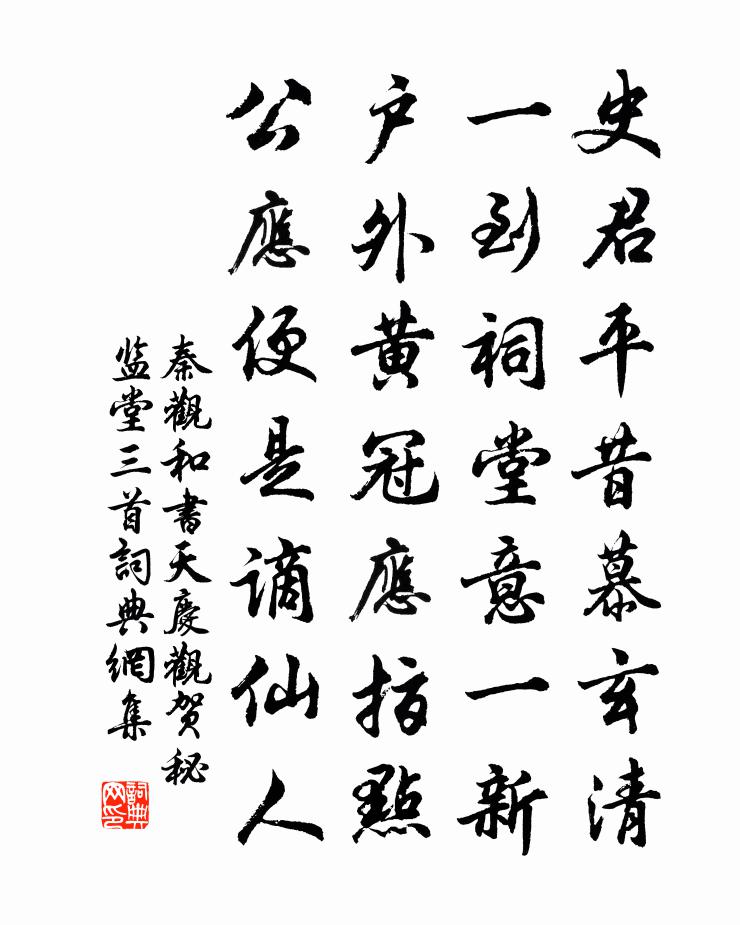 史君平昔慕玄清
一到祠堂意一新
户外黄冠應指點
公應便是謫仙人
秦觀和書天慶觀贺秘
监堂三首詞典網集
詞典网印